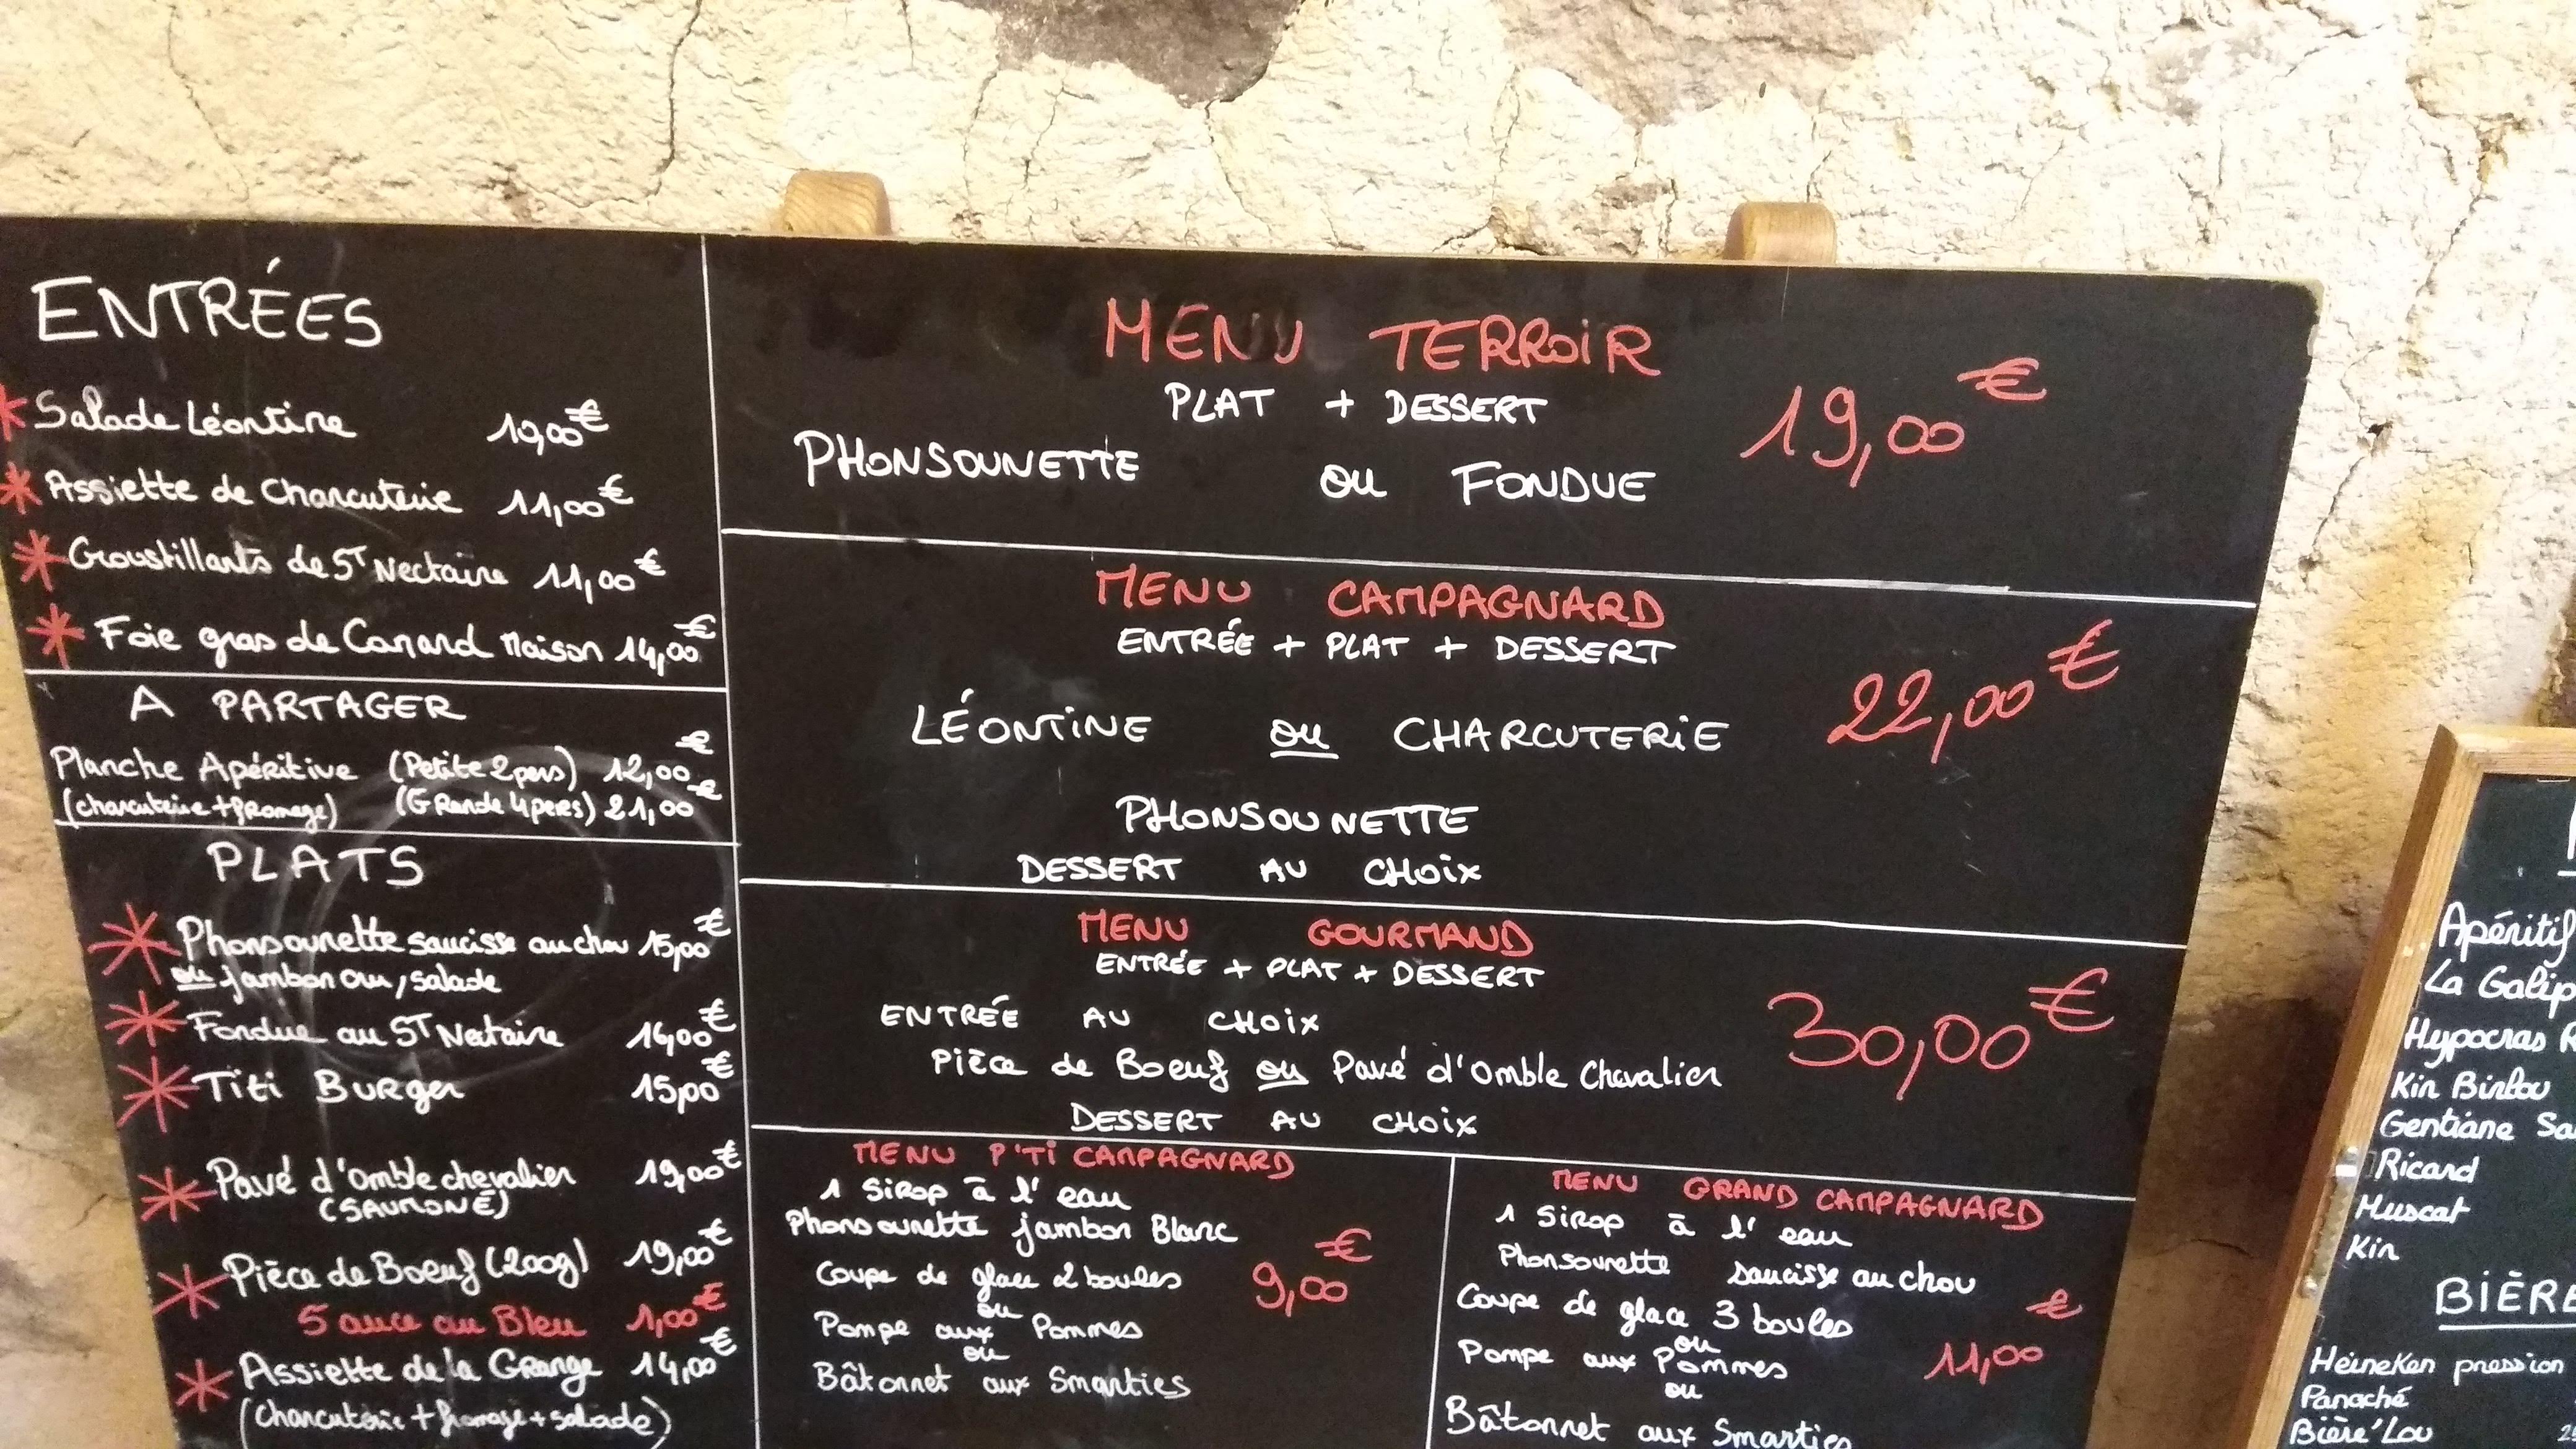 ENTRÉES
Salade Léontine 10,00€
Assiette de Charcuterie 11,00€
Croustillants de ST Nectaire 11,00€
Foie gras de Canard Maison 14,00€
A PARTAGER
Planche Apéritive (Petite 2pers) 12,00€
(charcuterie+fromage) (Grande 4pers) 21,00€
PLATS
Phonsounette saucisse au chou 15,00€
ou jambon cru, salade
Fondue au ST Nectaire 16,00€
Titi Burger 15,00€
Pavé d'omble chevalier 19,00€
(SAUMONÉ)
Pièce de Boeuf (200g) 19,00€
Sauce au Bleu 1,00€
Assiette de la Grange 14,00€
(Charcuterie+fromage+salade)
MENU TERROIR
PLAT + DESSERT
19,00€
PHONSOUNETTE ou FONDUE
MENU CAMPAGNARD
ENTRÉE + PLAT + DESSERT
22,00€
LÉONTINE ou CHARCUTERIE
PHONSOUNETTE
DESSERT AU CHOIX
MENU GOURMAND
ENTRÉE + PLAT + DESSERT
ENTRÉE AU CHOIX
30,00€
Pièce de Boeuf ou Pavé d'Omble Chevalier
DESSERT AU CHOIX
MENU P'TI CAMPAGNARD
1 Sirop à l'eau
Phonsounette jambon Blanc
Coupe de glace 2 boules
9,00€
ou
Pompe aux Pommes
ou
Bâtonnet aux Smarties
MENU GRAND CAMPAGNARD
1 Sirop à l'eau
Phonsounette saucisse au chou
Coupe de glace 3 boules
ou
Pompe aux Pommes
11,00€
ou
Bâtonnet aux Smarties
Apéritif
La Galip
Hypocras R
Kir Birlou
Gentiane Sa
Ricard
Muscat
Kir
BIÈRE
Heineken pression
Panaché
Bière'Lou